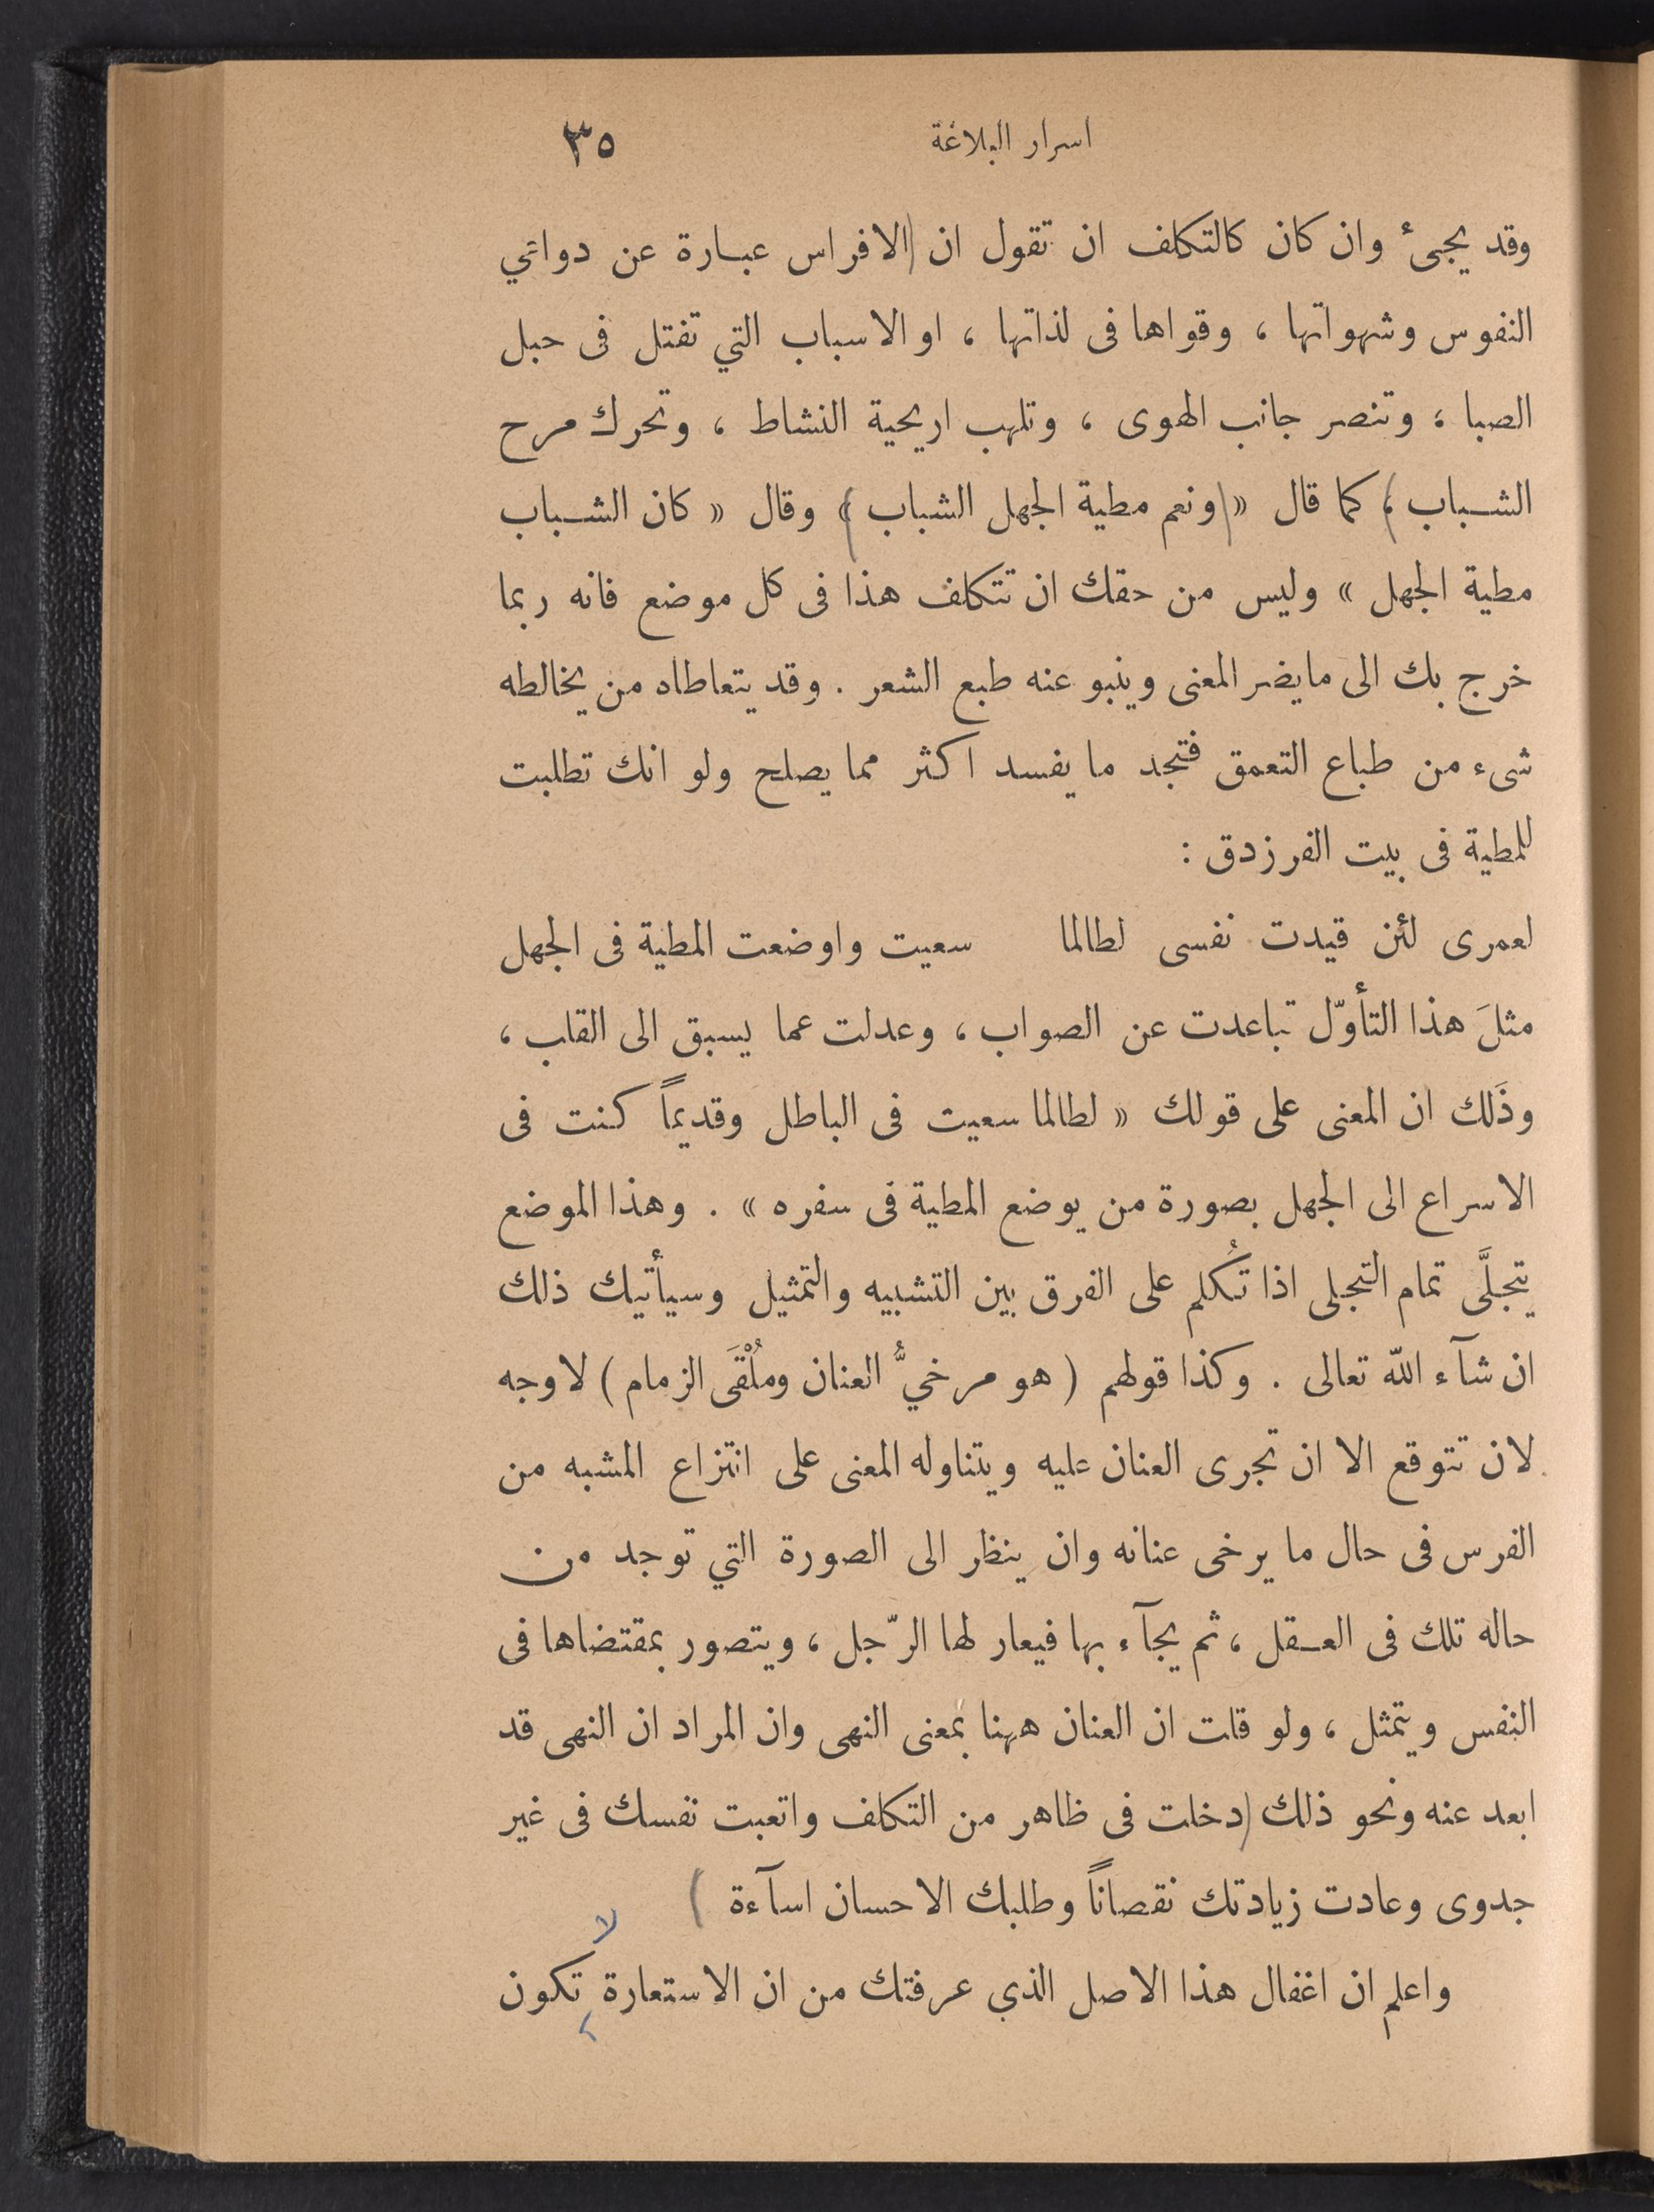 اسرار البلاغة ٣٥
وقد يجىء وان كان كالتكلف ان تقول ان (الافراس عبارة عن دواعي
النفوس وشهواتها ، وقواها فى لذاتها ، او الاسباب التي تفتل فى حبل
الصبا ، وتنصر جانب الهوى ، وتلهب اريحية النشاط ، وتحرك مرح
الشباب ) كما قال « (ونعم مطية الجهل الشباب ) » وقال « كان الشباب
مطية الجهل » وليس من حقك ان تتكلف هذا فى كل موضع فانه ربما
خرج بك الى ما يضر المعنى وينبو عنه طبع الشعر . وقد يتعاطاه من يخالطه
شىء من طباع التعمق فتجد ما يفسد اكثر مما يصلح ولو انك تطلبت
للمطية فى بيت الفرزدق :
لعمرى لئن قيدت نفسى لطالما سعيت واوضعت المطية فى الجهل
مثلَ هذا التأوّل تباعدت عن الصواب ، وعدلت عما يسبق الى القلب ،
وذَلك ان المعنى على قولك « لطالما سعيت فى الباطل وقديماً كنت فى
الاسراع الى الجهل بصورة من يوضع المطية فى سفره » . وهذا الموضع
يتجلَّى تمام التجلى اذا تُكلم على الفرق بين التشبيه والتمثيل وسيأتيك ذلك
ان شآء اللّه تعالى . وكذا قولهم ( هو مرخيُّ العنان ومُلْقَى الزمام ) لا وجه
لان تتوقع الا ان تجرى العنان عليه ويتناوله المعنى على انتزاع المشبه من
الفرس فى حال ما يرخى عنانه وان ينظر الى الصورة التي توجد من
حاله تلك فى العقل ، ثم يجآء بها فيعار لها الرّجل ، ويتصور بمقتضاها فى
النفس ويتمثل ، ولو قلت ان العنان ههنا بمعنى النهى وان المراد ان النهى قد
ابعد عنه ونحو ذلك (دخلت فى ظاهر من التكلف واتعبت نفسك فى غير
جدوى وعادت زيادتك نقصاناً وطلبك الاحسان اسآءة )
لا
واعلم ان اغفال هذا الاصل الذي عرفتك من ان الاستعارة تكون